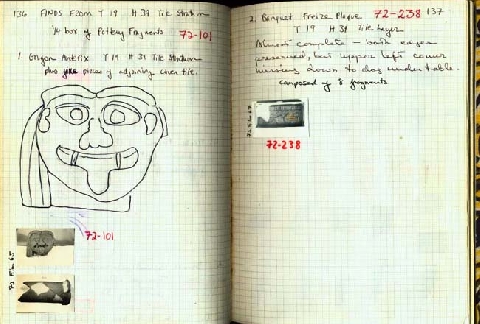 136 FINDS From T 19 H 38 Tile Stratum
1/4 box of Pottery Fragments 72-101
1 Gorgon Antefix T 19 H 38 Tile Stratum
plus piece of adjoining cover tile.
72-101
137
2. Banquet Frieze Plaque 72-238
T 19 H 38 Tile Layer
Almost complete — both edges
preserved, but upper left corner
missing down to dog under table.
composed of 8 fragments
72-238